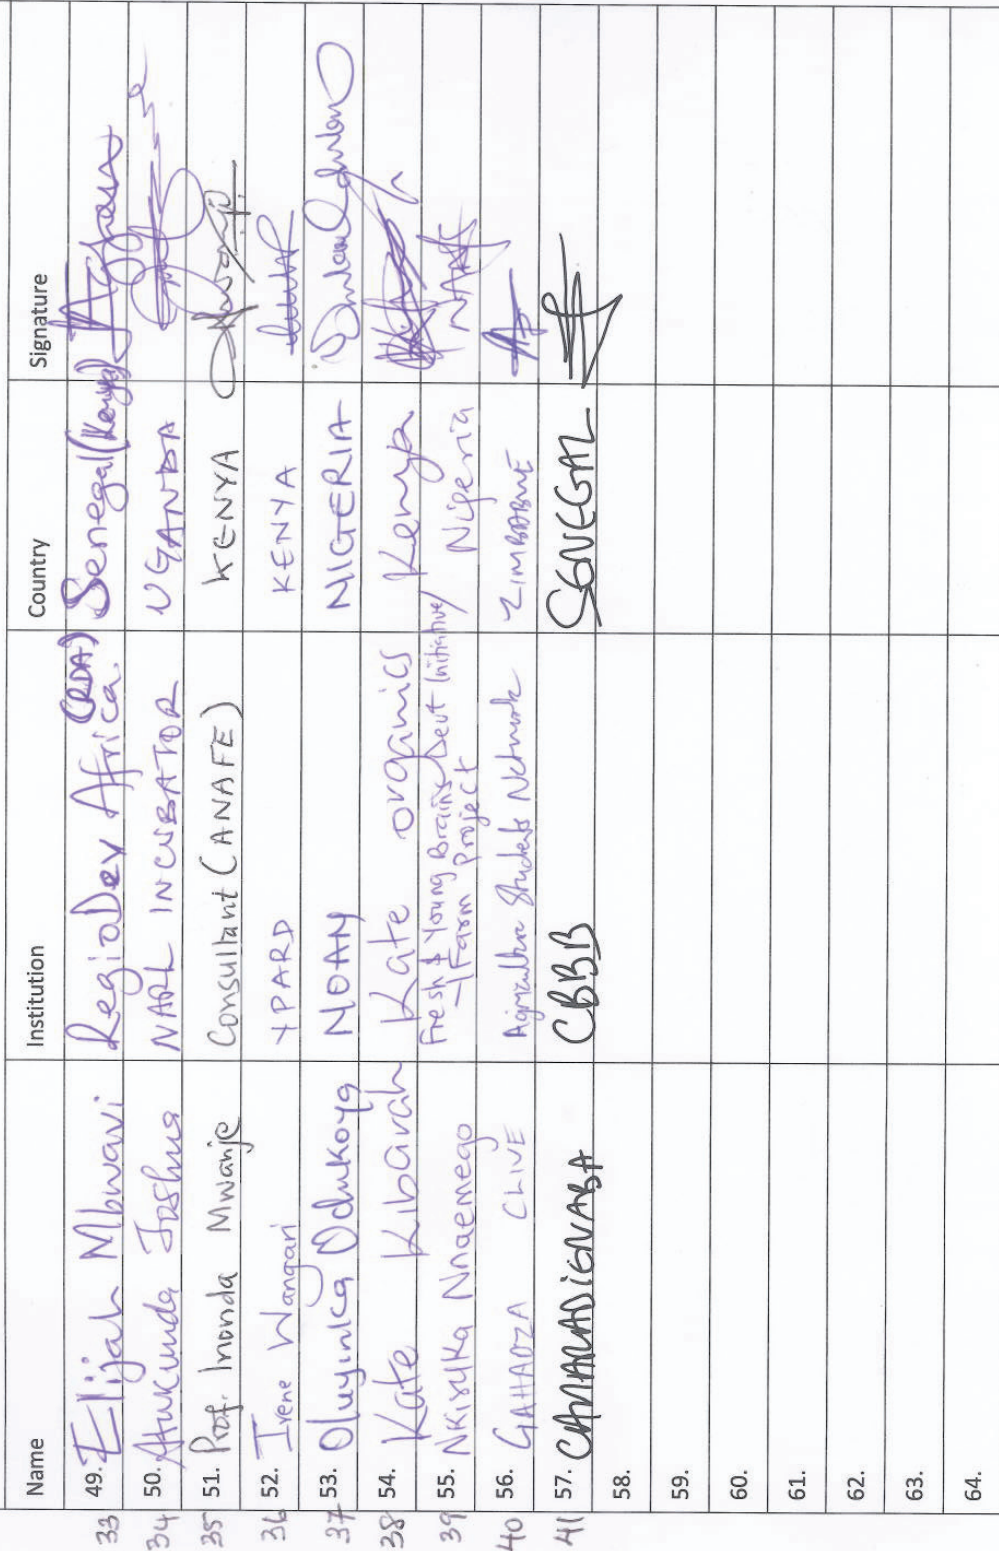 Name Institution Country Signature
33 49. Elijah Mbwavi RegioDev Africa (RDA) Senegal (Kenya)
34 50. Atukunda Joshua NARL INCUBATOR UGANDA
35 51. Prof. Imonda Mwanje Consultant (ANAFE) KENYA
36 52. Irene Wangari YPARD KENYA
37 53. Oluyinka Odukoya NOAN NIGERIA
38 54. Kate Kibarah Kate organics Kenya
39 55. Nkiruka Nnaemego Fresh & Young Brains Devt Initiative/ Nigeria
Farm Project
40 56. GAHADZA CLIVE Agriculture Students Network ZIMBABWE
41 57. CBBB SENEGAL
58.
59.
60.
61.
62.
63.
64.